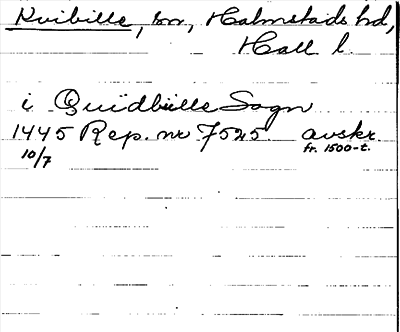 Kvibille, sn, Halmstads hd,
Hall l.
i Quidbille Sogn
1445 Rep. nr 7525 avskr.
10/7 fr. 1500-t.